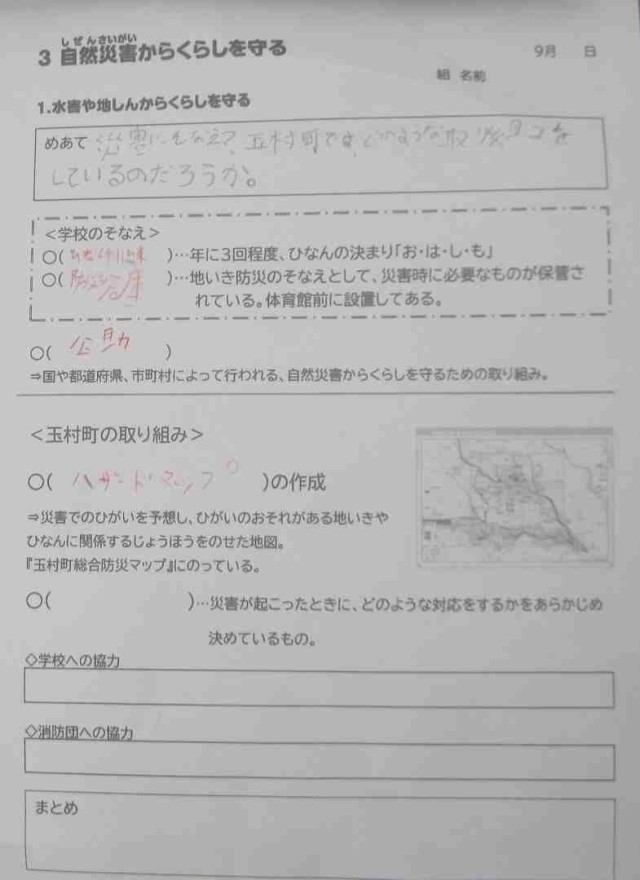 しぜんさいがい
3 自然災害からくらしを守る
9月 日
組 名前
1.水害や地しんからくらしを守る
めあて 災害にそなえて、玉村町では、どのような取り組みを
しているのだろうか。
<学校のそなえ>
○(ひなん訓練)…年に3回程度、ひなんの決まり「お・は・し・も」
○(防災倉庫)…地いき防災のそなえとして、災害時に必要なものが保管さ
れている。体育館前に設置してある。
○(公助)
⇒国や都道府県、市町村によって行われる、自然災害からくらしを守るための取り組み。
<玉村町の取り組み>
○(ハザードマップ)の作成
⇒災害でのひがいを予想し、ひがいのおそれがある地いきや
ひなんに関係するじょうほうをのせた地図。
『玉村町総合防災マップ』にのっている。
○( )…災害が起こったときに、どのような対応をするかをあらかじめ
決めているもの。
◇学校への協力
◇消防団への協力
まとめ